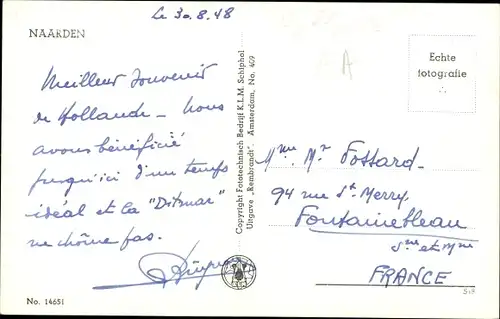 Le 30.8.48
NAARDEN
Meilleur souvenir
de Hollande - Nous
avons bénéficié
jusqu'ici d'un temps
idéal et la "Ditmar"
ne chôme pas.
No. 14651
Copyright Fototechnisch Bedrijf K.L.M. Schiphol
Uitgave „Rembrandt" Amsterdam, No. 469
A
Echte
fotografie
Mme Mr Fossard -
94 rue St Merry.
Fontainebleau
Sne et Mne
FRANCE